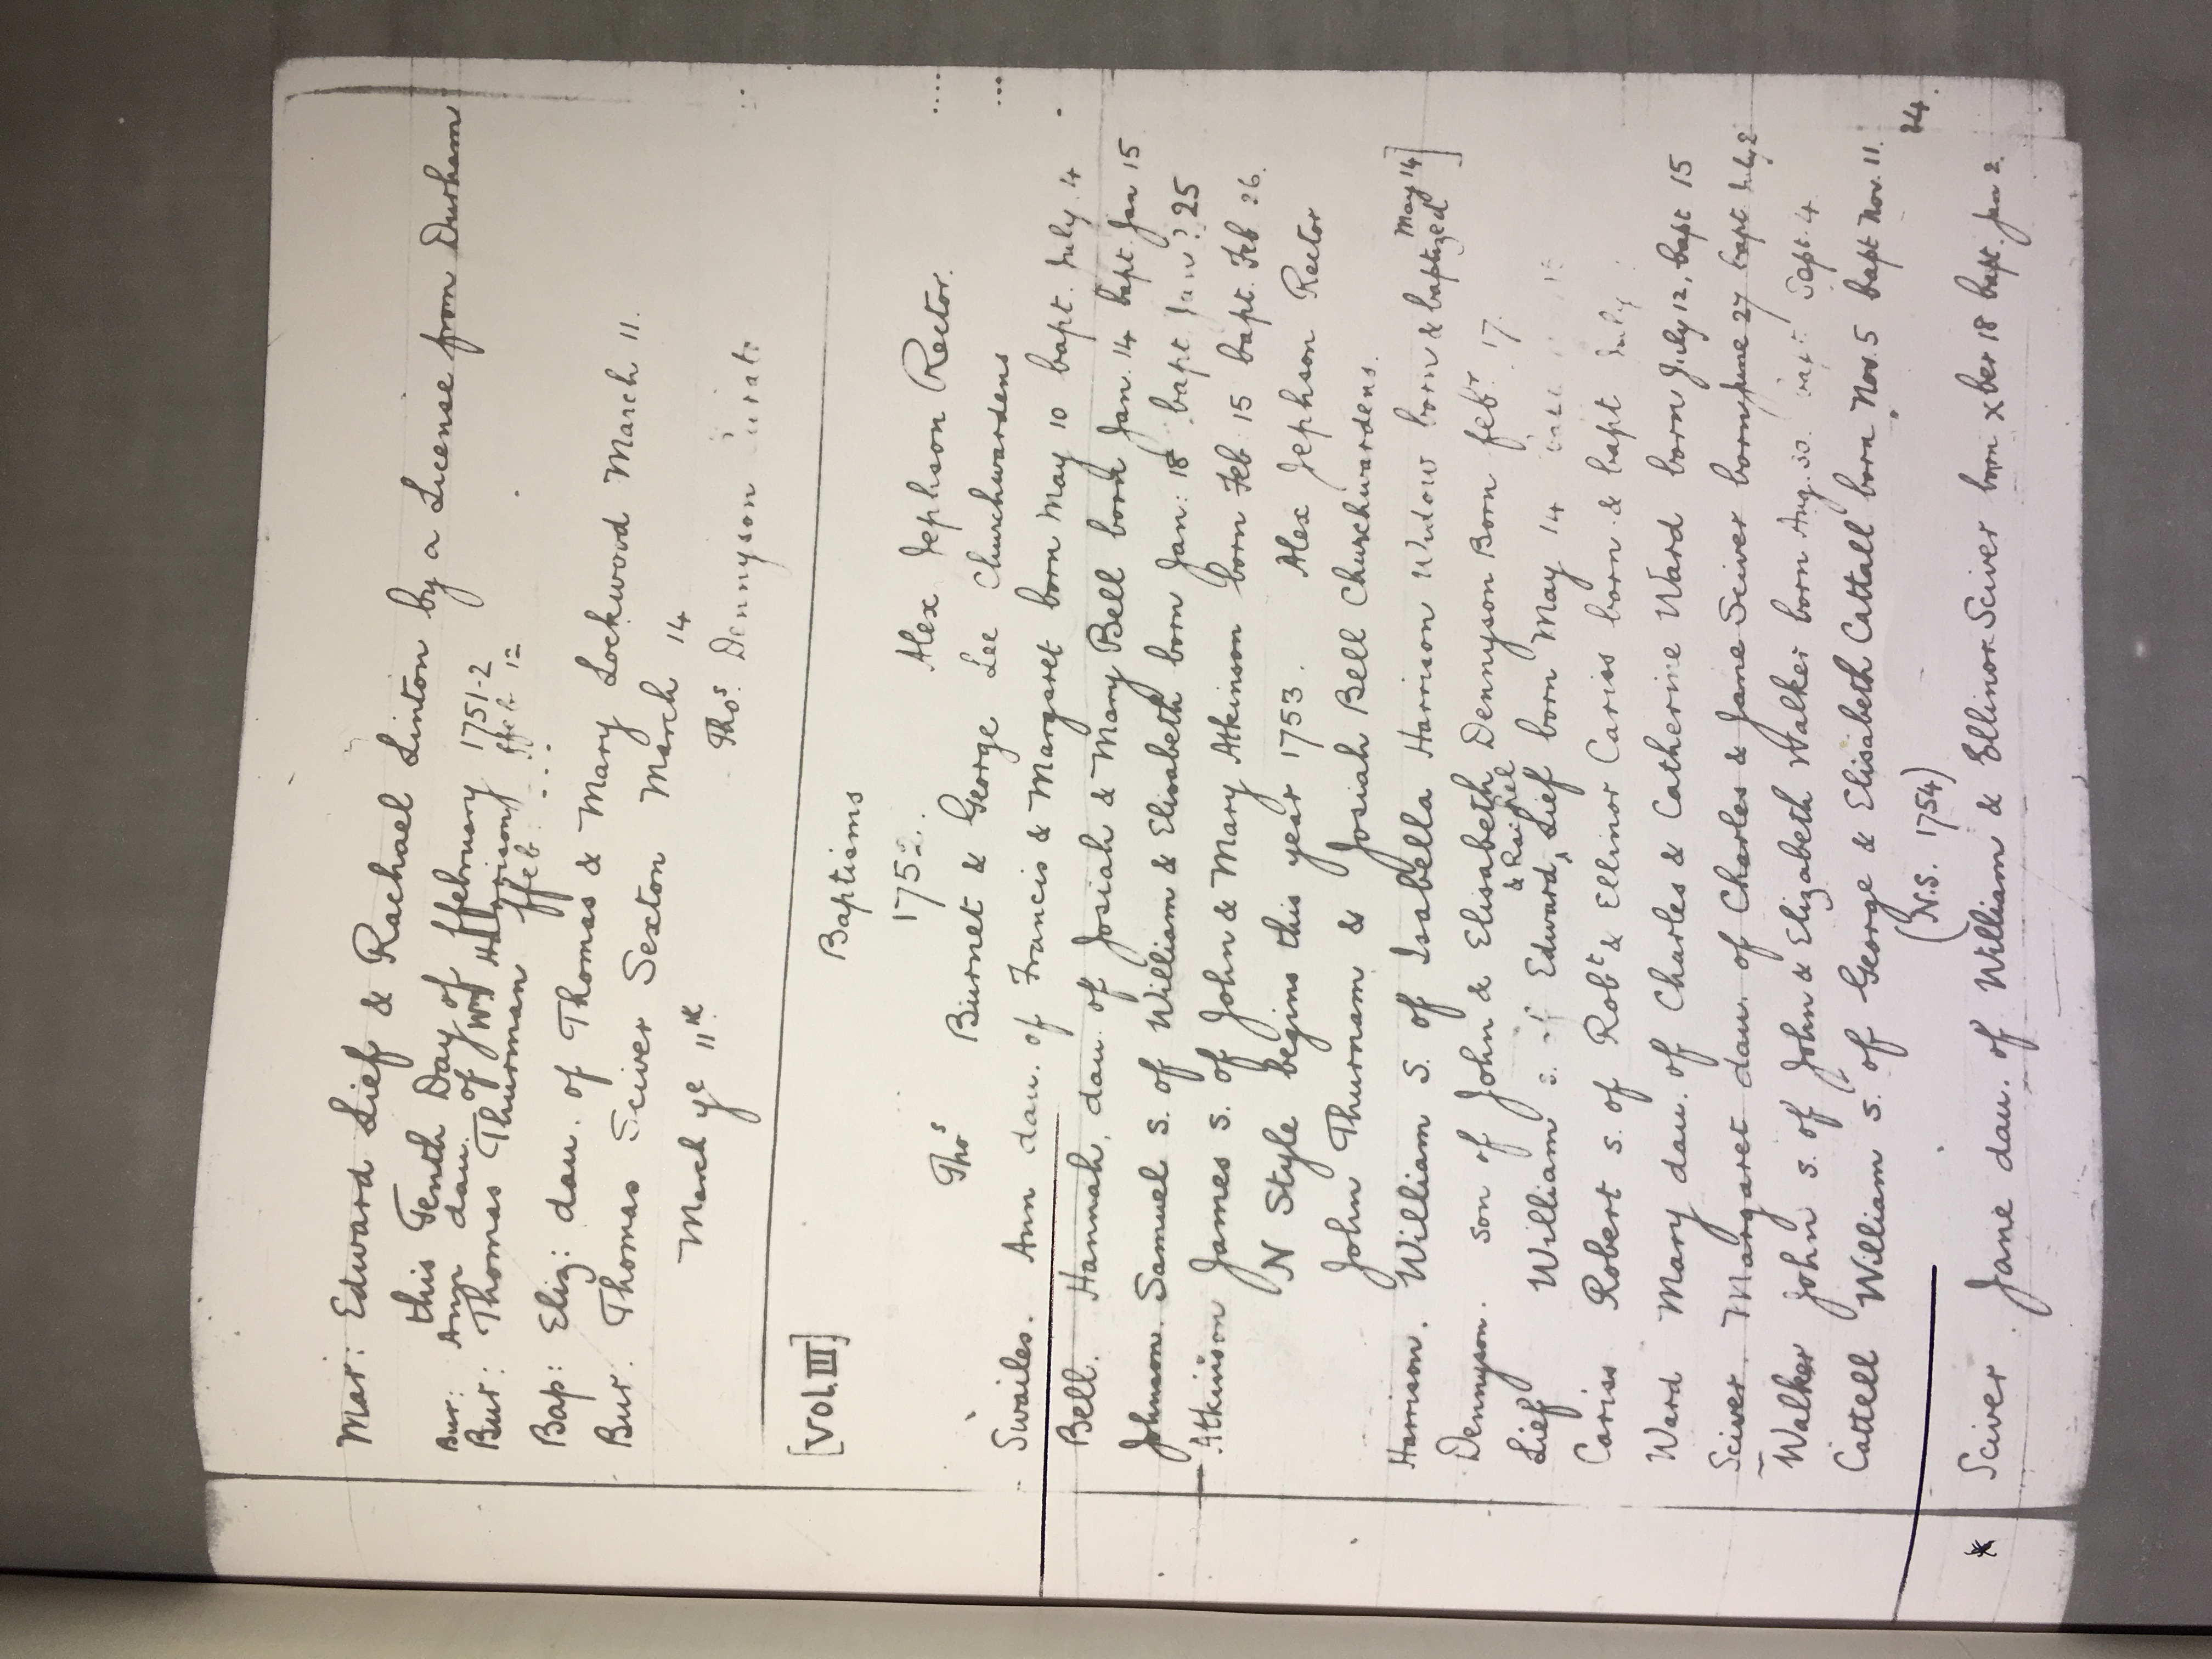 Mar: Edward Lief & Rachael Linton by a License from Durham
this Tenth Day of ffebruary 1751-2
Bur: Ann dau. of Wm Harrison ffeb 12
Bur: Thomas Thurman ffeb. ...
Bap: Eliz: dau. of Thomas & Mary Lockwood March 11.
Bur. Thomas Sciver Sexton March 14
March ye 11th Thos. Dennyson Curate
[Vol. III] Baptisms
1752. Alex Jephson Rector.
Thos Burnet & George Lee Churchwardens
Swailes. Ann dau. of Francis & Margaret born May 10 bapt. July. 4
Bell. Hannah, dau. of Josiah & Mary Bell born Jan. 14 bapt. Jan 15
Johnson. Samuel s. of William & Elisabeth born Jan: 18 bapt. Jan? 25
Atkinson James s. of John & Mary Atkinson born Feb. 15 bapt. Feb 26.
N Style begins this year 1753. Alex Jephson Rector
John Thurnam & Josiah Bell Churchwardens.
Harrison. William S. of Isabella Harrison Widow born & baptized May 14]
Dennyson. son of John & Elisabeth Dennyson Born febr. 17.
Lief William s. of Edward & Rachel Lief born May 14
Cariss Robert s. of Robt & Ellinor Cariss born & bapt July
Ward Mary dau. of Charles & Catherine Ward born July 12, bapt 15
Sciver. Margaret dau. of Charles & Jane Sciver born June 27 bapt July 2
Walker John s. of John & Elizabeth Walker born Aug. 30. bapt. Sept. 4.
Cattell William s. of George & Elisabeth Cattall born Nov. 5 bapt Nov. 11.
(N.S. 1754) 24.
* Sciver. Jane dau. of William & Ellinor Sciver born xber 18 bapt. Jan 2.